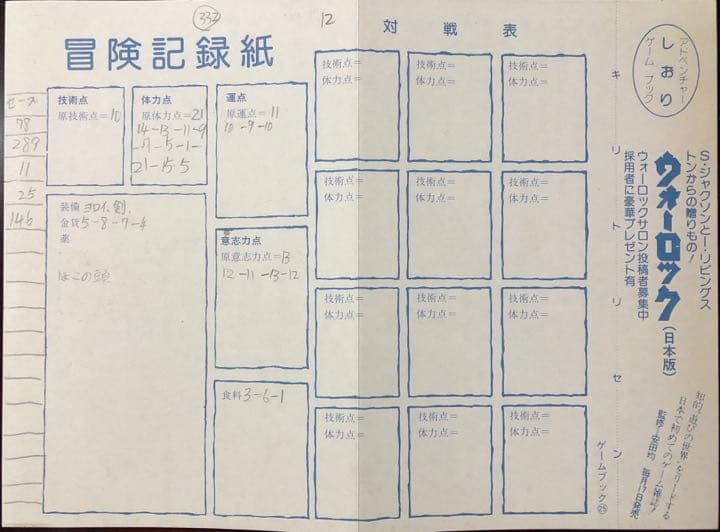 332
12
冒険記録紙
対戦表
セーブ
78
289
11
25
146
技術点
原技術点=10
体力点
原体力点=21
14-13-11-9
21-15-5
運点
原運点=11
10-9-10
装備 ヨロイ、剣、
金貨5-8-7-4
薬
はこの頭
意志力点
原意志力点=13
12-11-13-12
食料3-6-1
技術点=
体力点=
技術点=
体力点=
技術点=
体力点=
技術点=
体力点=
技術点=
体力点=
技術点=
体力点=
技術点=
体力点=
技術点=
体力点=
技術点=
体力点=
技術点=
体力点=
技術点=
体力点=
技術点=
体力点=
キリトリセン
ゲームブック㉕
アドベンチャー
しおり
ゲームブック
S・ジャクソンとI・リビングス
トンからの贈りもの!
ウォーロック(日本版)
ウォーロックサロン投稿者募集中
採用者に豪華プレゼント有
知的“遊びの世界”をリードする
日本で初めてのゲーム雑誌
監修=安田均 毎月17日発売